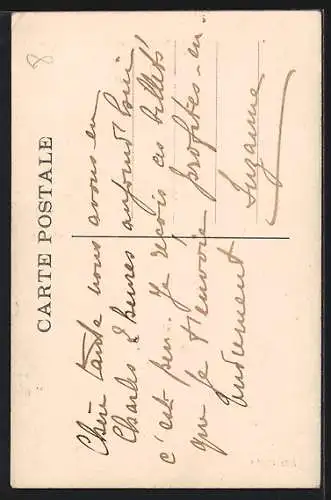 8
CARTE POSTALE
Chère tante nous avons eu
Charles 2 heures aujourd'hui
c'est peu. Je reçois ces billets
que je t'envoie profites-en
Suzanne